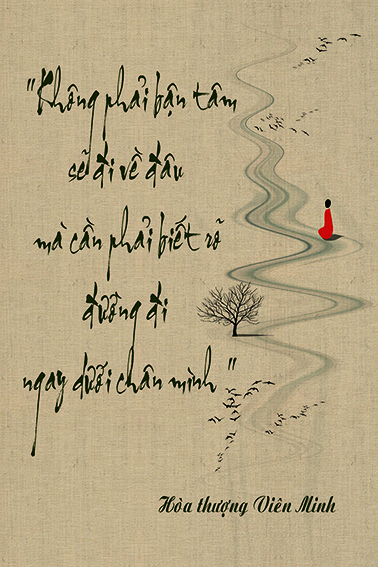 "Không phải bận tâm
sẽ đi về đâu
mà cần phải biết rõ
đường đi
ngay dưới chân mình"
Hòa thượng Viên Minh